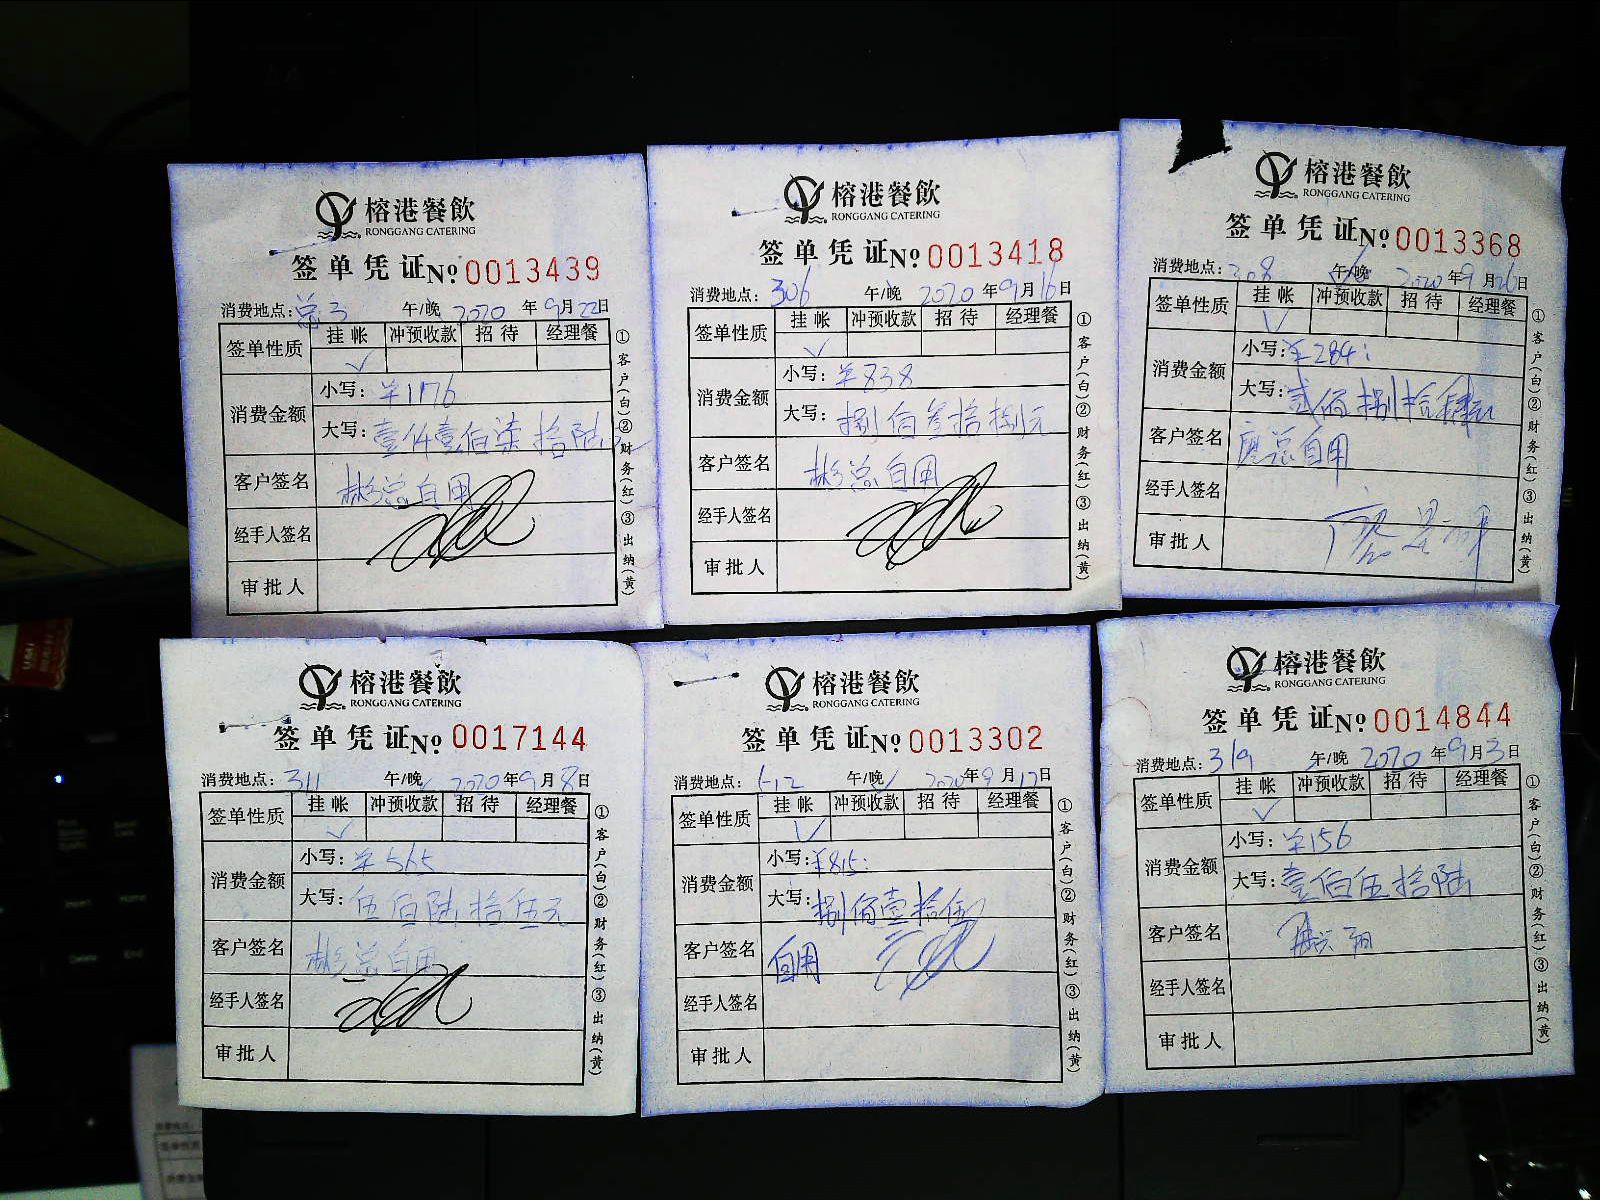 榕港餐飲
RONGGANG CATERING
签单凭证№0013439
消费地点:总3 午/晚 2020年9月22日
签单性质 挂帐 冲预收款 招待 经理餐
✓
消费金额 小写:¥1176
大写:壹仟壹佰柒拾陆
客户签名 彬总自用
经手人签名
审批人
①客户(白)②财务(红)③出纳(黄)
榕港餐飲
RONGGANG CATERING
签单凭证№0013418
消费地点:306 午/晚 2020年9月16日
签单性质 挂帐 冲预收款 招待 经理餐
✓
消费金额 小写:¥838
大写:捌佰叁拾捌元
客户签名 彬总自用
经手人签名
审批人
①客户(白)②财务(红)③出纳(黄)
榕港餐飲
RONGGANG CATERING
签单凭证№0013368
消费地点:308 午/晚 2020年9月26日
签单性质 挂帐 冲预收款 招待 经理餐
✓
消费金额 小写:¥284:
大写:贰佰捌拾肆元
客户签名 廖总自用
经手人签名
审批人
①客户(白)②财务(红)③出纳(黄)
榕港餐飲
RONGGANG CATERING
签单凭证№0017144
消费地点:311 午/晚 2020年9月8日
签单性质 挂帐 冲预收款 招待 经理餐
✓
消费金额 小写:¥565
大写:伍佰陆拾伍元
客户签名 彬总自用
经手人签名
审批人
①客户(白)②财务(红)③出纳(黄)
榕港餐飲
RONGGANG CATERING
签单凭证№0013302
消费地点: 午/晚✓ 2020年9月17日
签单性质 挂帐 冲预收款 招待 经理餐
✓
消费金额 小写:¥815:
大写:捌佰壹拾伍
客户签名 自用
经手人签名
审批人
①客户(白)②财务(红)③出纳(黄)
榕港餐飲
RONGGANG CATERING
签单凭证№0014844
消费地点:319 午/晚 2020年9月3日
签单性质 挂帐 冲预收款 招待 经理餐
✓
消费金额 小写:¥156
大写:壹佰伍拾陆
客户签名
经手人签名
审批人
①客户(白)②财务(红)③出纳(黄)